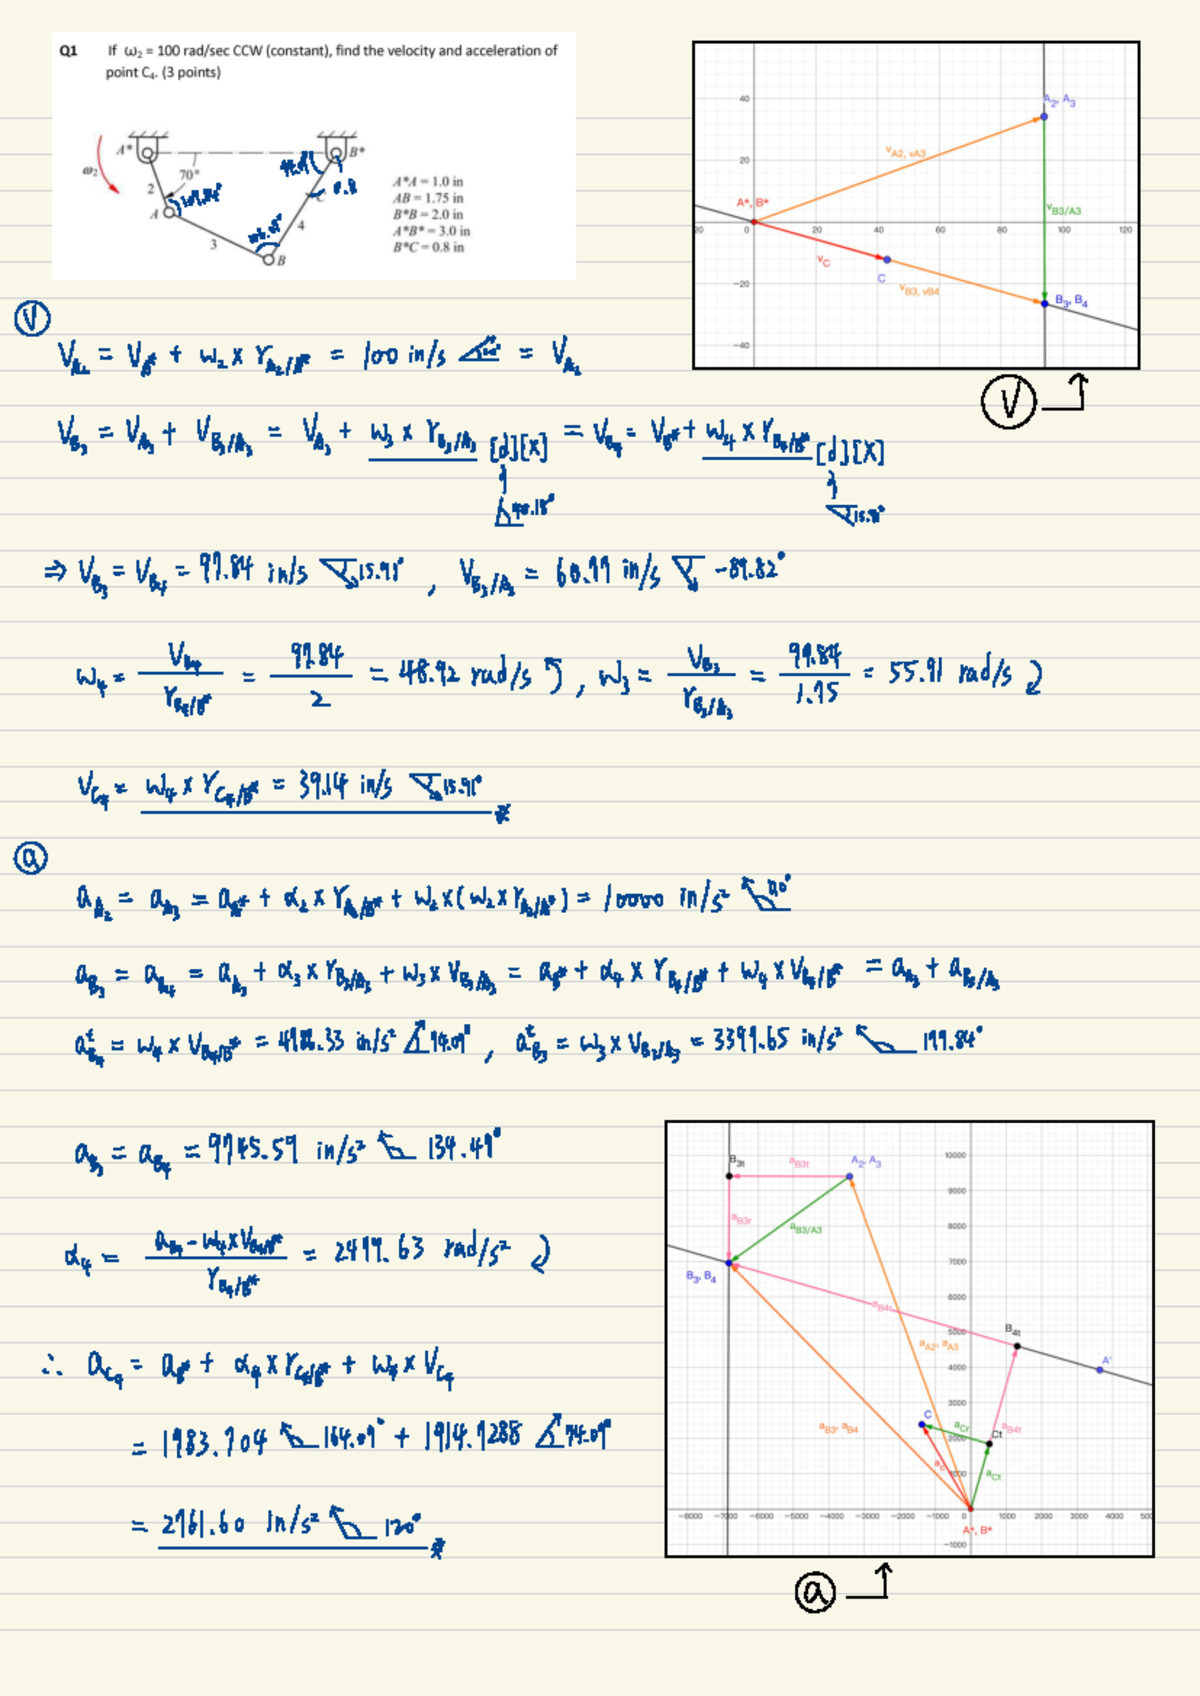 Q1 If ω₂ = 100 rad/sec CCW (constant), find the velocity and acceleration of
point C₄. (3 points)
A* B*
ω₂ 70°
2 0.8
A C
4
3
B
A*A = 1.0 in
AB = 1.75 in
B*B = 2.0 in
A*B* = 3.0 in
B*C = 0.8 in
40
20
0
−20
−40
20 0 20 40 60 80 100 120
A₂, A₃
vA2, vA3
A*, B*
vB3/A3
vC
C
vB3, vB4
B₃, B₄
V
V
V_A₂ = V_A* + ω₂ × r_A₂/A* = 100 in/s = V_A₃
V_B₃ = V_A₃ + V_B₃/A₃ = V_A₃ + ω₃ × r_B₃/A₃ [d][x] = V_B₄ = V_B* + ω₄ × r_B₄/B* [d][x]
⇒ V_B₃ = V_B₄ = 97.84 in/s 15.91°, V_B₃/A₃ = 60.99 in/s −89.82°
ω₄ = V_B₄ / r_B₄/B* = 97.84 / 2 = 48.92 rad/s, ω₃ = V_B₃ / r_B₃/A₃ = 97.84 / 1.75 = 55.91 rad/s
V_C₄ = ω₄ × r_C₄/B* = 39.14 in/s 15.91°
a
a_A₂ = a_A₃ = a_A* + α₂ × r_A₂/A* + ω₂ × (ω₂ × r_A₂/A*) = 10000 in/s²
a_B₃ = a_B₄ = a_A₃ + α₃ × r_B₃/A₃ + ω₃ × V_B₃/A₃ = a_B* + α₄ × r_B₄/B* + ω₄ × V_B₄/B* = a_A₃ + a_B₃/A₃
a^t_B₄ = ω₄ × V_B₄/B* = in/s² 74.09°, a^t_B₃ = ω₃ × V_B₃/A₃ = 3399.65 in/s² 179.84°
a_B₃ = a_B₄ = 9745.59 in/s² 134.49°
α₄ = a_B₄ − ω₄ × V_B₄/B* / r_B₄/B* = 2479.63 rad/s²
∴ a_C₄ = a_B* + α₄ × r_C₄/B* + ω₄ × V_C₄
= 1983.704 164.09° + 1914.7288 74.09°
= 2761.60 in/s² 120°
10000
9000
8000
7000
6000
5000
4000
3000
2000
1000
−1000
−8000 −7000 −6000 −5000 −4000 −3000 −2000 −1000 0 1000 2000 3000 4000 500
B3t
aB3t
A₂, A₃
aB3r
aB3/A3
B₃, B₄
aB4r
B4t
aA2, aA3
A'
C
aB3, aB4
aCr
aB4t
Ct
aC
aCt
A*, B*
a